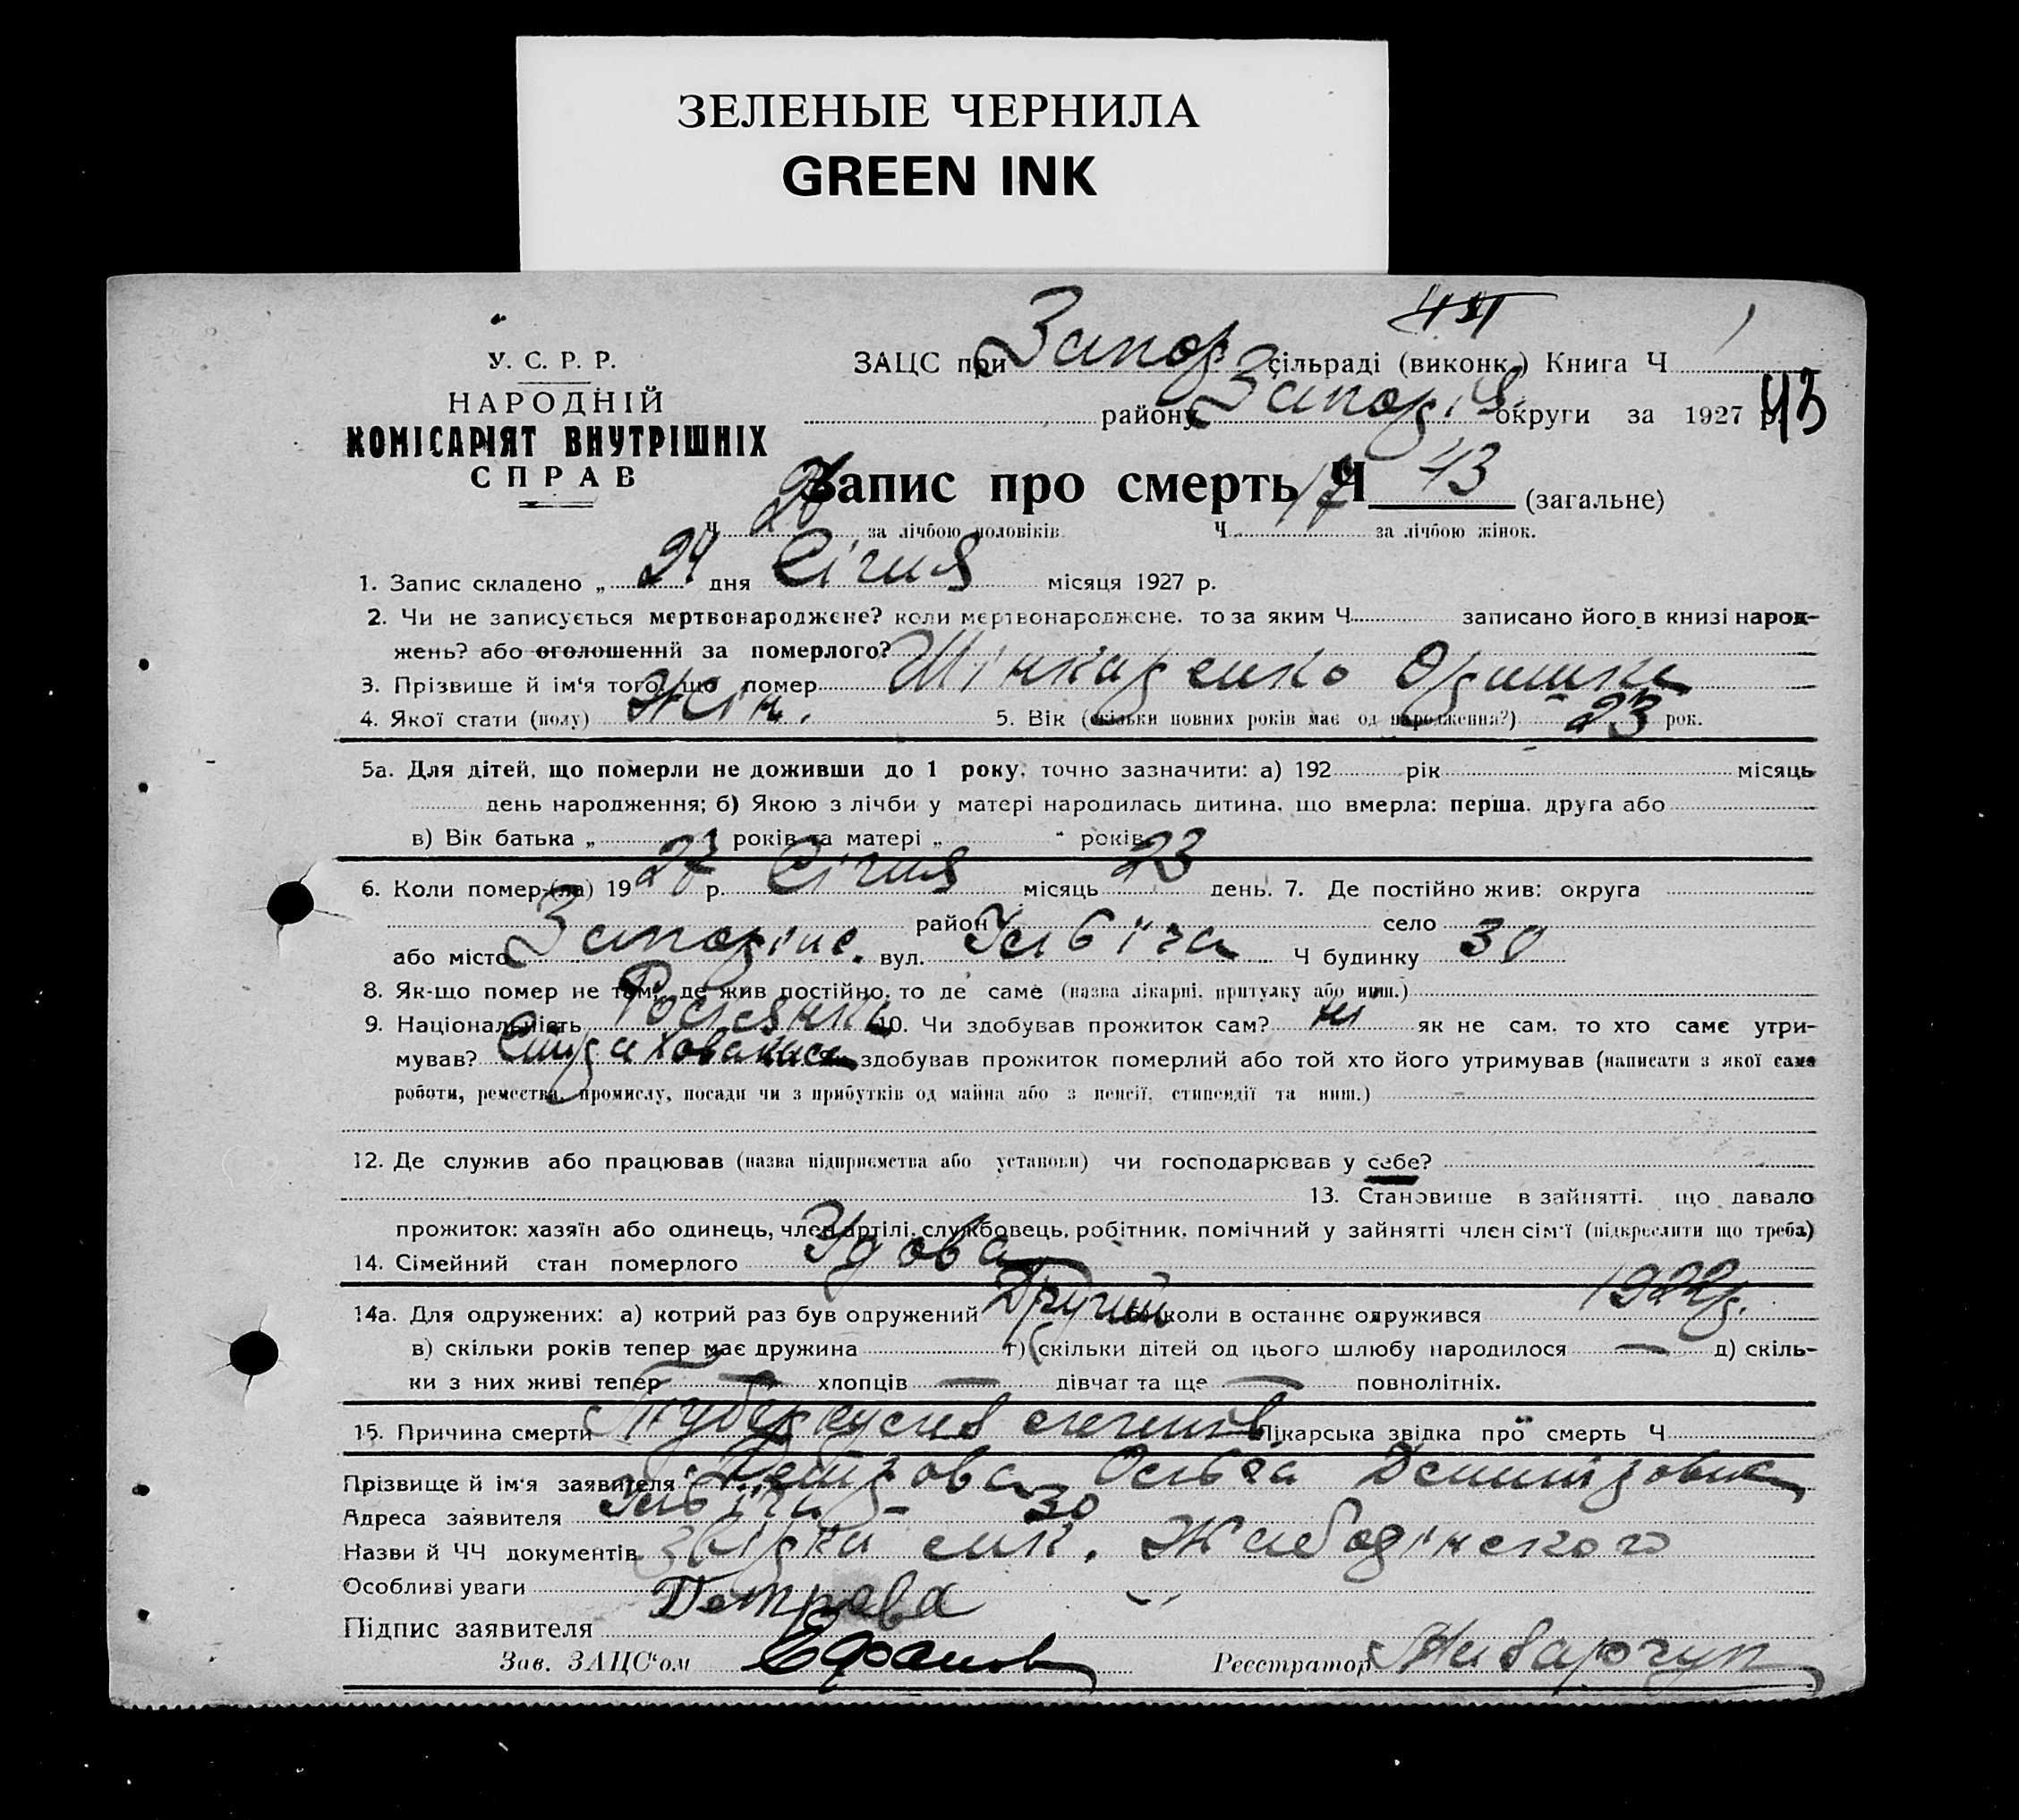 ЗЕЛЕНЫЕ ЧЕРНИЛА
GREEN INK
У. С. Р. Р.
НАРОДНІЙ
КОМІСАРІЯТ ВНУТРІШНІХ
СПРАВ
ЗАЦС при Запор. сільраді (виконк.) Книга Ч 1
району Запор. округи за 1927 р. 43
Запис про смерть Ч 43 (загальне)
Ч 26 за лічбою чоловіків. Ч 17 за лічбою жінок.
1. Запис складено „ 24 дня Січня місяця 1927 р.
2. Чи не записується мертвонароджене? коли мертвонароджене, то за яким Ч записано його в книзі народ-
жень? або оголошений за померлого?
3. Прізвище й ім'я того, що помер Шінкаренко Оришка
4. Якої стати (полу) Жін. 5. Вік (скільки повних років має од народження?) 23 рок.
5а. Для дітей, що померли не доживши до 1 року, точно зазначити: а) 192 рік місяць
день народження; б) Якою з лічби у матері народилась дитина, що вмерла: перша, друга або
в) Вік батька „ " років та матері „ " років.
6. Коли помер-(ла) 1927 р. Січня місяць 23 день. 7. Де постійно жив: округа
район село
або місто Запоріжж. вул. Ілліча Ч будинку 30
8. Як-що помер не там, де жив постійно, то де саме (назва лікарні, притулку або инш.)
9. Національність Росіянка 10. Чи здобував прожиток сам? ні як не сам, то хто саме утри-
мував? здобував прожиток померлий або той хто його утримував (написати з якої саме
роботи, ремества, промислу, посади чи з прибутків од майна або з пенсії, стипендії та инш.)
12. Де служив або працював (назва підприємства або установи) чи господарював у себе?
13. Становище в зайнятті, що давало
прожиток: хазяїн або одинець, член артілі, службовець, робітник, помічний у зайнятті член сім'ї (підкреслити що треба)
14. Сімейний стан померлого Удова
14а. Для одружених: а) котрий раз був одружений Другий б) коли в останнє одружився 1922 р.
в) скільки років тепер має дружина г) скільки дітей од цього шлюбу народилося — д) скіль-
ки з них живі тепер — хлопців — дівчат та ще — повнолітніх.
15. Причина смерти Туберкульов легенів Лікарська звідка про смерть Ч
Прізвище й ім'я заявителя Петрова Ольга Демитровна
Адреса заявителя Ілліча - 30
Назви й ЧЧ документів
Особливі уваги
Підпис заявителя Петрова
Зав. ЗАЦС'ом Реєстратор